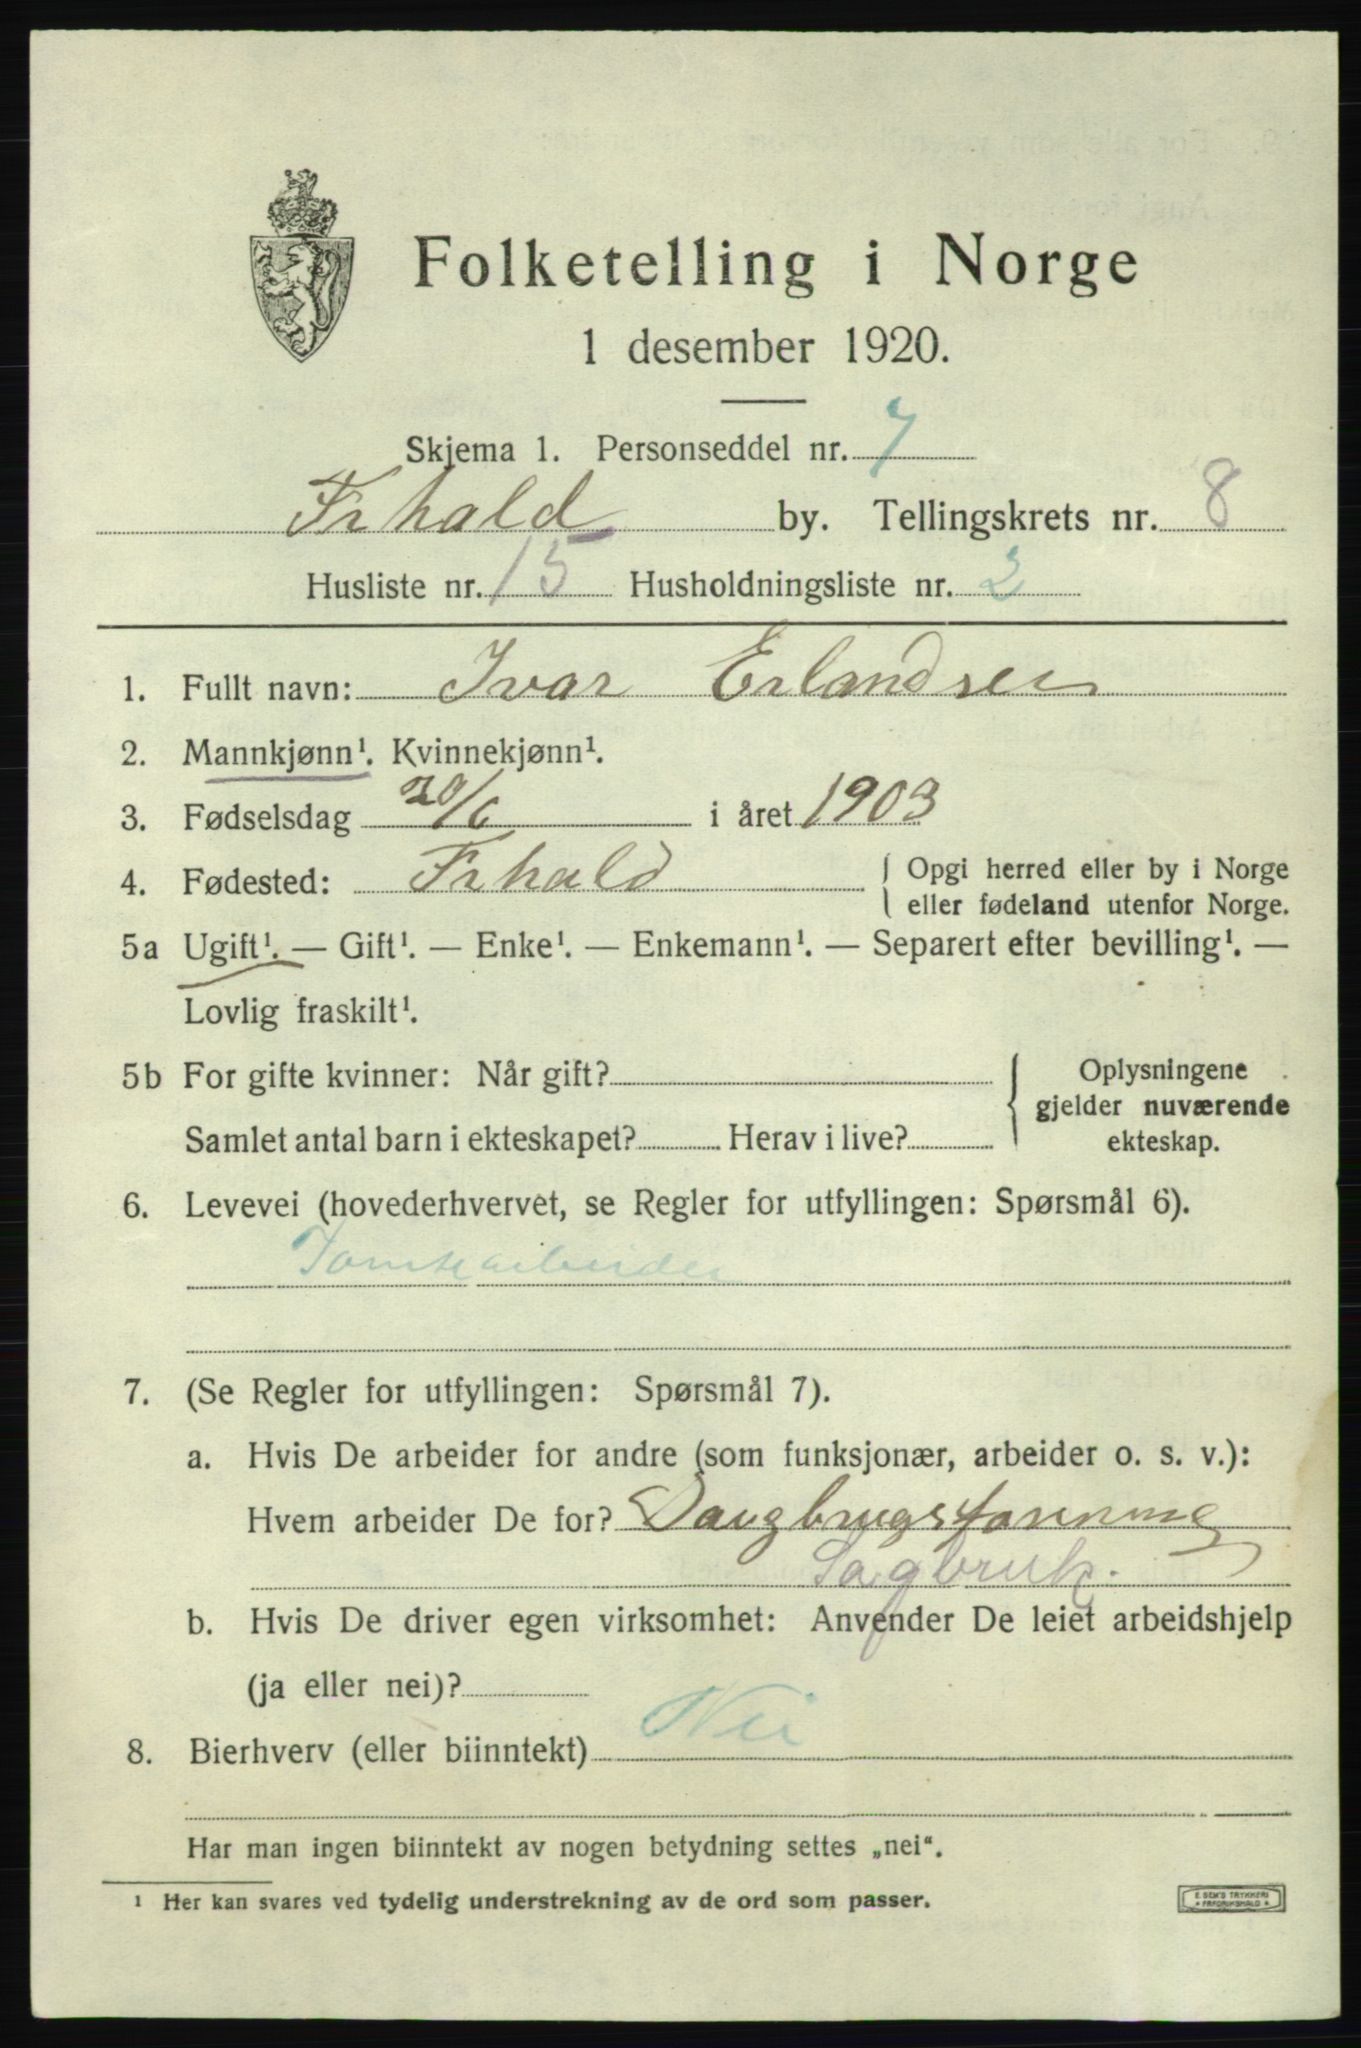 Folketelling i Norge
1 desember 1920.
Skjema 1. Personseddel nr. 7
Frhald by. Tellingskrets nr. 8
Husliste nr. 15 Husholdningsliste nr. 2
1. Fullt navn: Ivar Erlandsen
2. Mannkjønn¹. Kvinnekjønn¹.
3. Fødselsdag 20/6 i året 1903
4. Fødested: Frhald { Opgi herred eller by i Norge
eller fødeland utenfor Norge.
5a Ugift¹. — Gift¹. — Enke¹. — Enkemann¹. — Separert efter bevilling¹. —
Lovlig fraskilt¹.
5b For gifte kvinner: Når gift? { Oplysningene
gjelder nuværende
Samlet antal barn i ekteskapet? Herav i live? ekteskap.
6. Levevei (hovederhvervet, se Regler for utfyllingen: Spørsmål 6).
Tomtearbeider
7. (Se Regler for utfyllingen: Spørsmål 7).
a. Hvis De arbeider for andre (som funksjonær, arbeider o. s. v.):
Hvem arbeider De for? Saugbrugsforening
Sagbruk.
b. Hvis De driver egen virksomhet: Anvender De leiet arbeidshjelp
(ja eller nei)?
8. Bierhverv (eller biinntekt) Nei
Har man ingen biinntekt av nogen betydning settes „nei“.
¹ Her kan svares ved tydelig understrekning av de ord som passer.
E. SEM'S TRYKKERI
FREDRIKSHALD